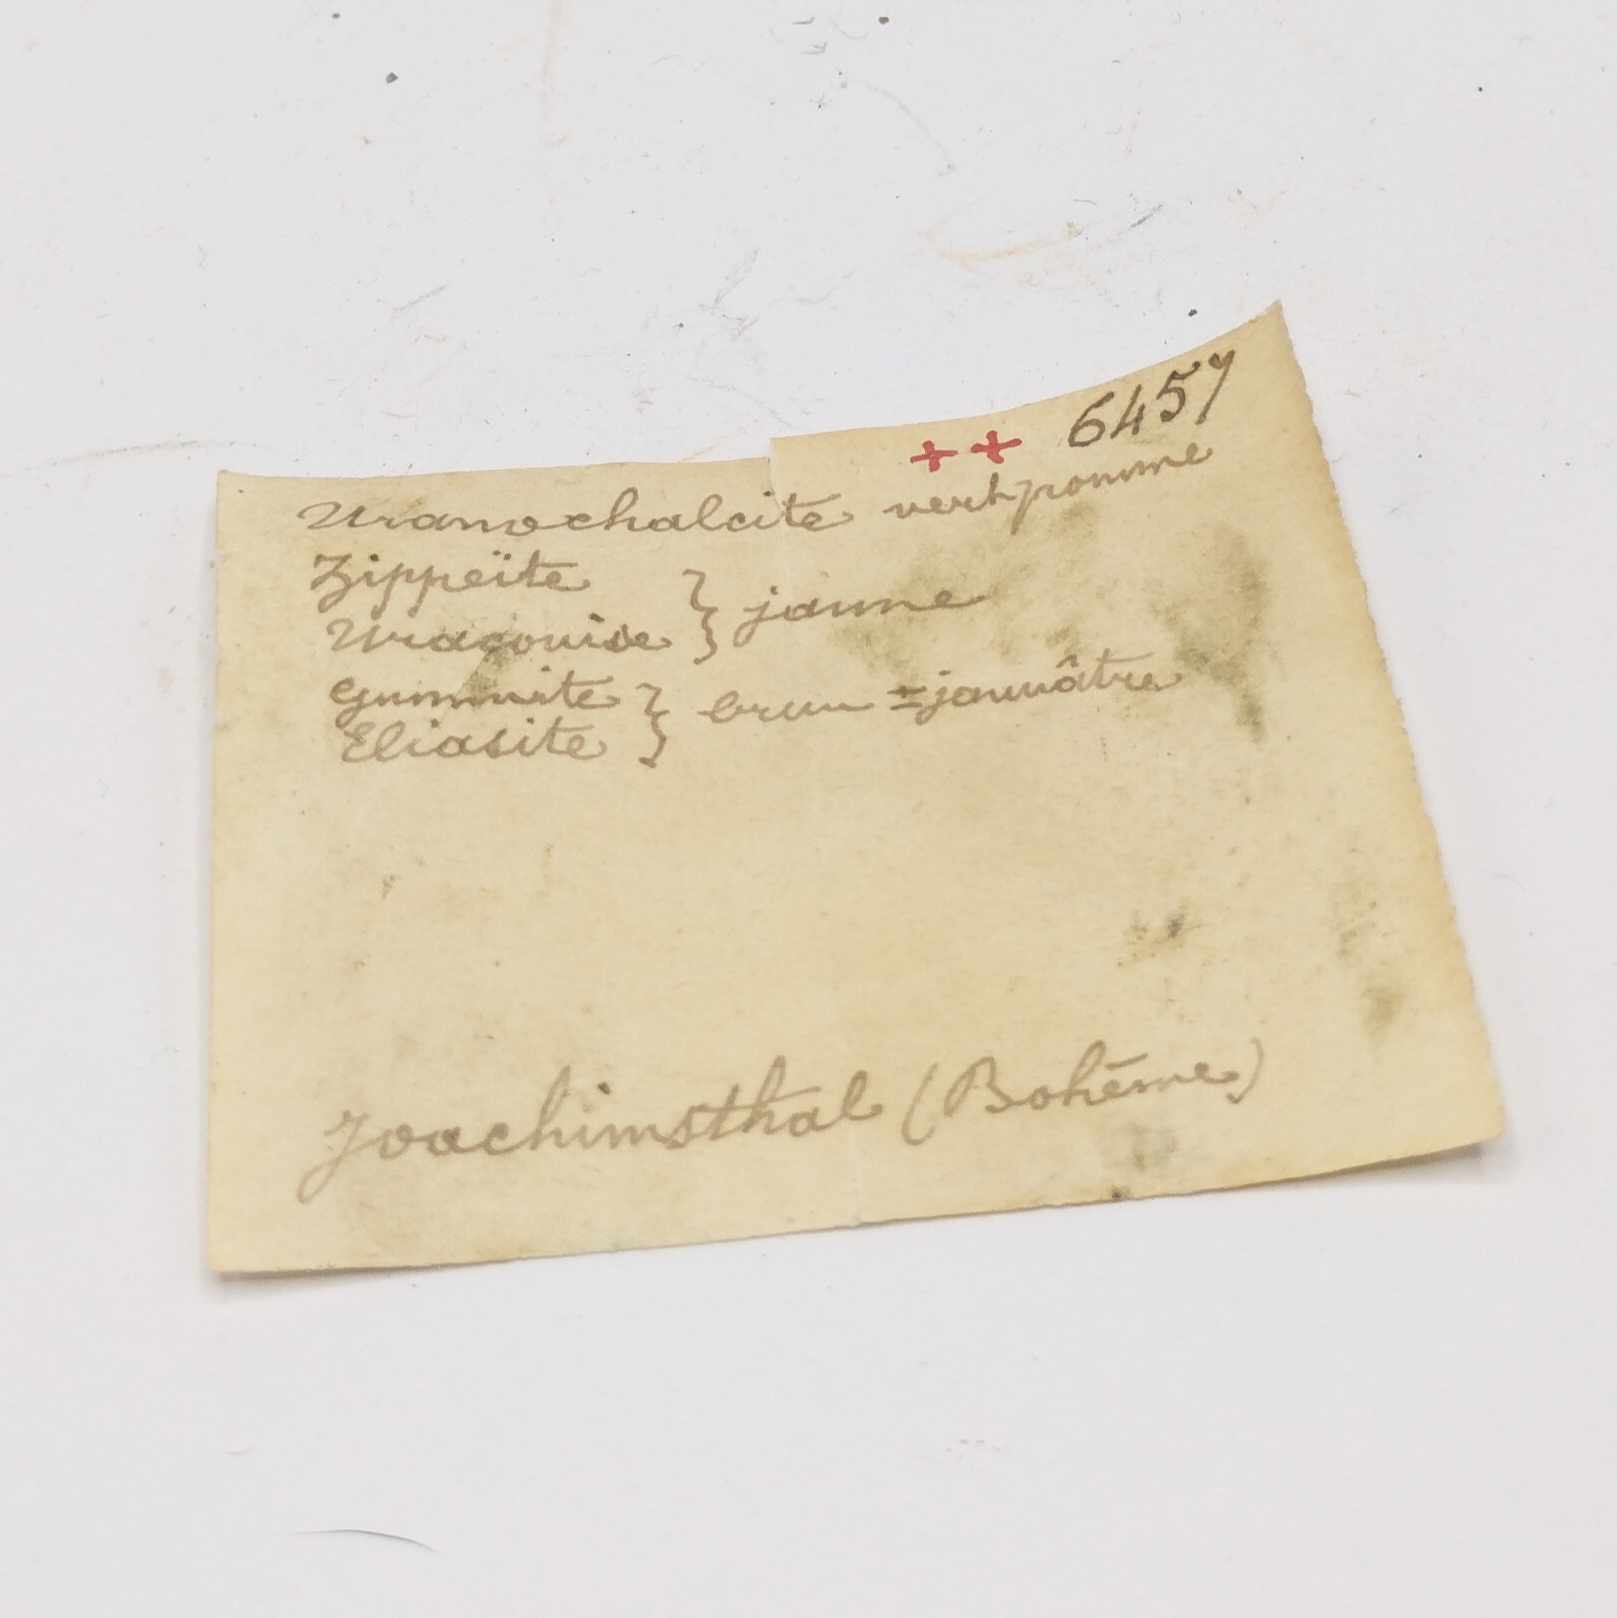 ++ 6457
Uranochalcite vert pomme
Zippeïte
Uraconise } jaune
Gummite
Eliasite } brun ± jaunâtre
Joachimsthal (Bohême)